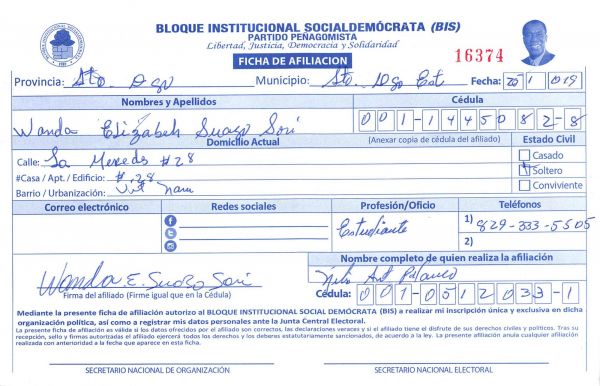 BLOQUE INSTITUCIONAL SOCIALDEMÓCRATA (BIS)
PARTIDO PEÑAGOMISTA
Libertad, Justicia, Democracia y Solidaridad
FICHA DE AFILIACION
16374
Provincia: Sto. Dgo Municipio: Sto. Dgo Est Fecha:
Nombres y Apellidos Cédula
Wanda Elizabeh Suazo Sori 001-1445082-8
Domicilio Actual (Anexar copia de cédula del afiliado) Estado Civil
Calle: La Mercede #28 Casado
#Casa / Apt. / Edificio: #.28 Soltero
Barrio / Urbanización: Conviviente
Correo electrónico Redes sociales Profesión/Oficio Teléfonos
Estudiante 1) 829-333-5505
2)
Nombre completo de quien realiza la afiliación
Wanda E. Suazo Sori
Firma del afiliado (Firme igual que en la Cédula) Cédula: 001-0512033-1
Mediante la presente ficha de afiliación autorizo al BLOQUE INSTITUCIONAL SOCIAL DEMÓCRATA (BIS) a realizar mi inscripción única y exclusiva en dicha
organización política, así como a registrar mis datos personales ante la Junta Central Electoral.
La presente ficha de afiliación es válida si los datos ofrecidos por el afiliado son correctos, las declaraciones veraces y si el afiliado tiene el disfrute de sus derechos civiles y políticos. Tras su
recepción, sello y firmas autorizadas el afiliado ejercerá todos los derechos y los deberes estatutariamente sancionados, de acuerdo a la ley. La presente afiliación anula cualquier afiliación
realizada con anterioridad a la fecha que aparece en esta ficha.
SECRETARIO NACIONAL DE ORGANIZACIÓN SECRETARIO NACIONAL ELECTORAL